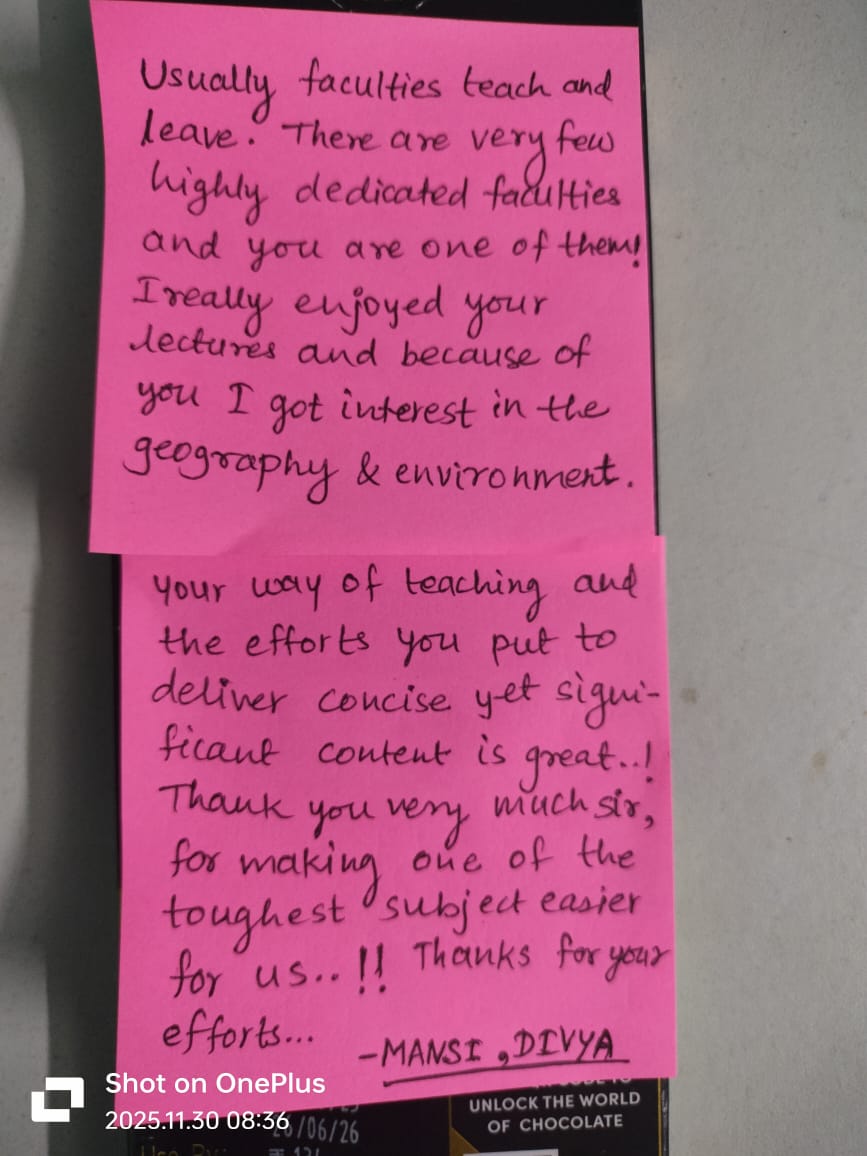 Usually faculties teach and
leave. There are very few
highly dedicated faculties
and you are one of them!
I really enjoyed your
lectures and because of
you I got interest in the
geography & environment.
your way of teaching and
the efforts you put to
deliver concise yet signi-
ficant content is great..!
Thank you very much sir,
for making one of the
toughest subject easier
for us..!! Thanks for your
efforts...
-MANSI, DIVYA
Shot on OnePlus
2025.11.30 08:36
/06/26
UNLOCK THE WORLD
OF CHOCOLATE